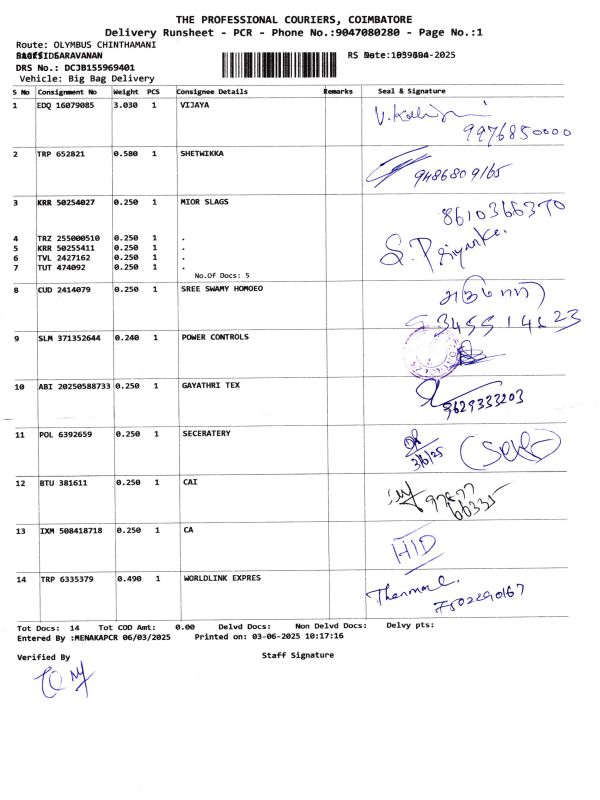 THE PROFESSIONAL COURIERS, COIMBATORE
Delivery Runsheet - PCR - Phone No.:9047080280 - Page No.:1
Route: OLYMBUS CHINTHAMANI
DRS No.: DCJB155969401
Vehicle: Big Bag Delivery
S No Consignment No Weight PCS Consignee Details Remarks Seal & Signature
1 EDQ 16079085 3.030 1 VIJAYA
9976850000
2 TRP 652821 0.580 1 SHETWIKKA
9486809165
3 KRR 50254027 0.250 1 MIOR SLAGS
8610366370
4 TRZ 255000510 0.250 1 .
5 KRR 50255411 0.250 1 .
6 TVL 2427162 0.250 1 .
7 TUT 474092 0.250 1 .
S. Priyanka.
No.Of Docs: 5
8 CUD 2414079 0.250 1 SREE SWAMY HOMOEO
9 SLM 371352644 0.240 1 POWER CONTROLS
10 ABI 20250588733 0.250 1 GAYATHRI TEX
9629333203
11 POL 6392659 0.250 1 SECERATERY
3/6/25
12 BTU 381611 0.250 1 CAI
13 IXM 508418718 0.250 1 CA
HID
14 TRP 6335379 0.490 1 WORLDLINK EXPRES
7502290167
Tot Docs: 14 Tot COD Amt: 0.00 Delvd Docs: Non Delvd Docs: Delvy pts:
Entered By :MENAKAPCR 06/03/2025 Printed on: 03-06-2025 10:17:16
Verified By Staff Signature